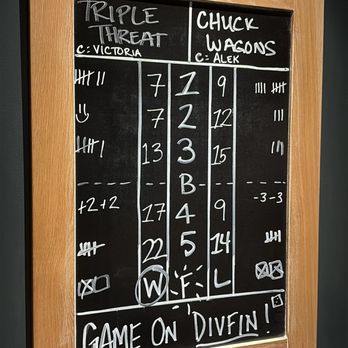 TRIPLE THREAT
C: VICTORIA
CHUCK WAGONS
C: ALEK
7 1 9
7 2 12
13 3 15
B
+2 +2 17 4 9 -3 -3
22 5 14
W F L
GAME ON 'DIVFIN'!